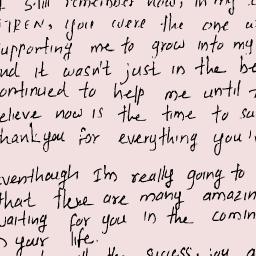 I still remember how, in my
you were the one
supporting me to grow into my
and it wasn't just in the be
continued to help me until
believe now is the time to sa
thank you for everything you
Eventhough I'm really going to
that there are many amazin
waiting for you in the comin
your life.
the success, joy